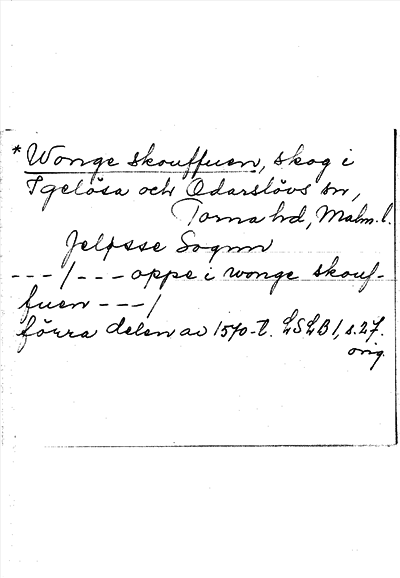 *Wonge skouffuen, skog i
Igelösa och Odarslövs sn,
Torna hd, Malm. l.
Jeløsse Sognn
---/--- oppe i wonge skouf-
fuen ---/
förra delen av 1570-t. LSLB 1, s. 27.
orig.